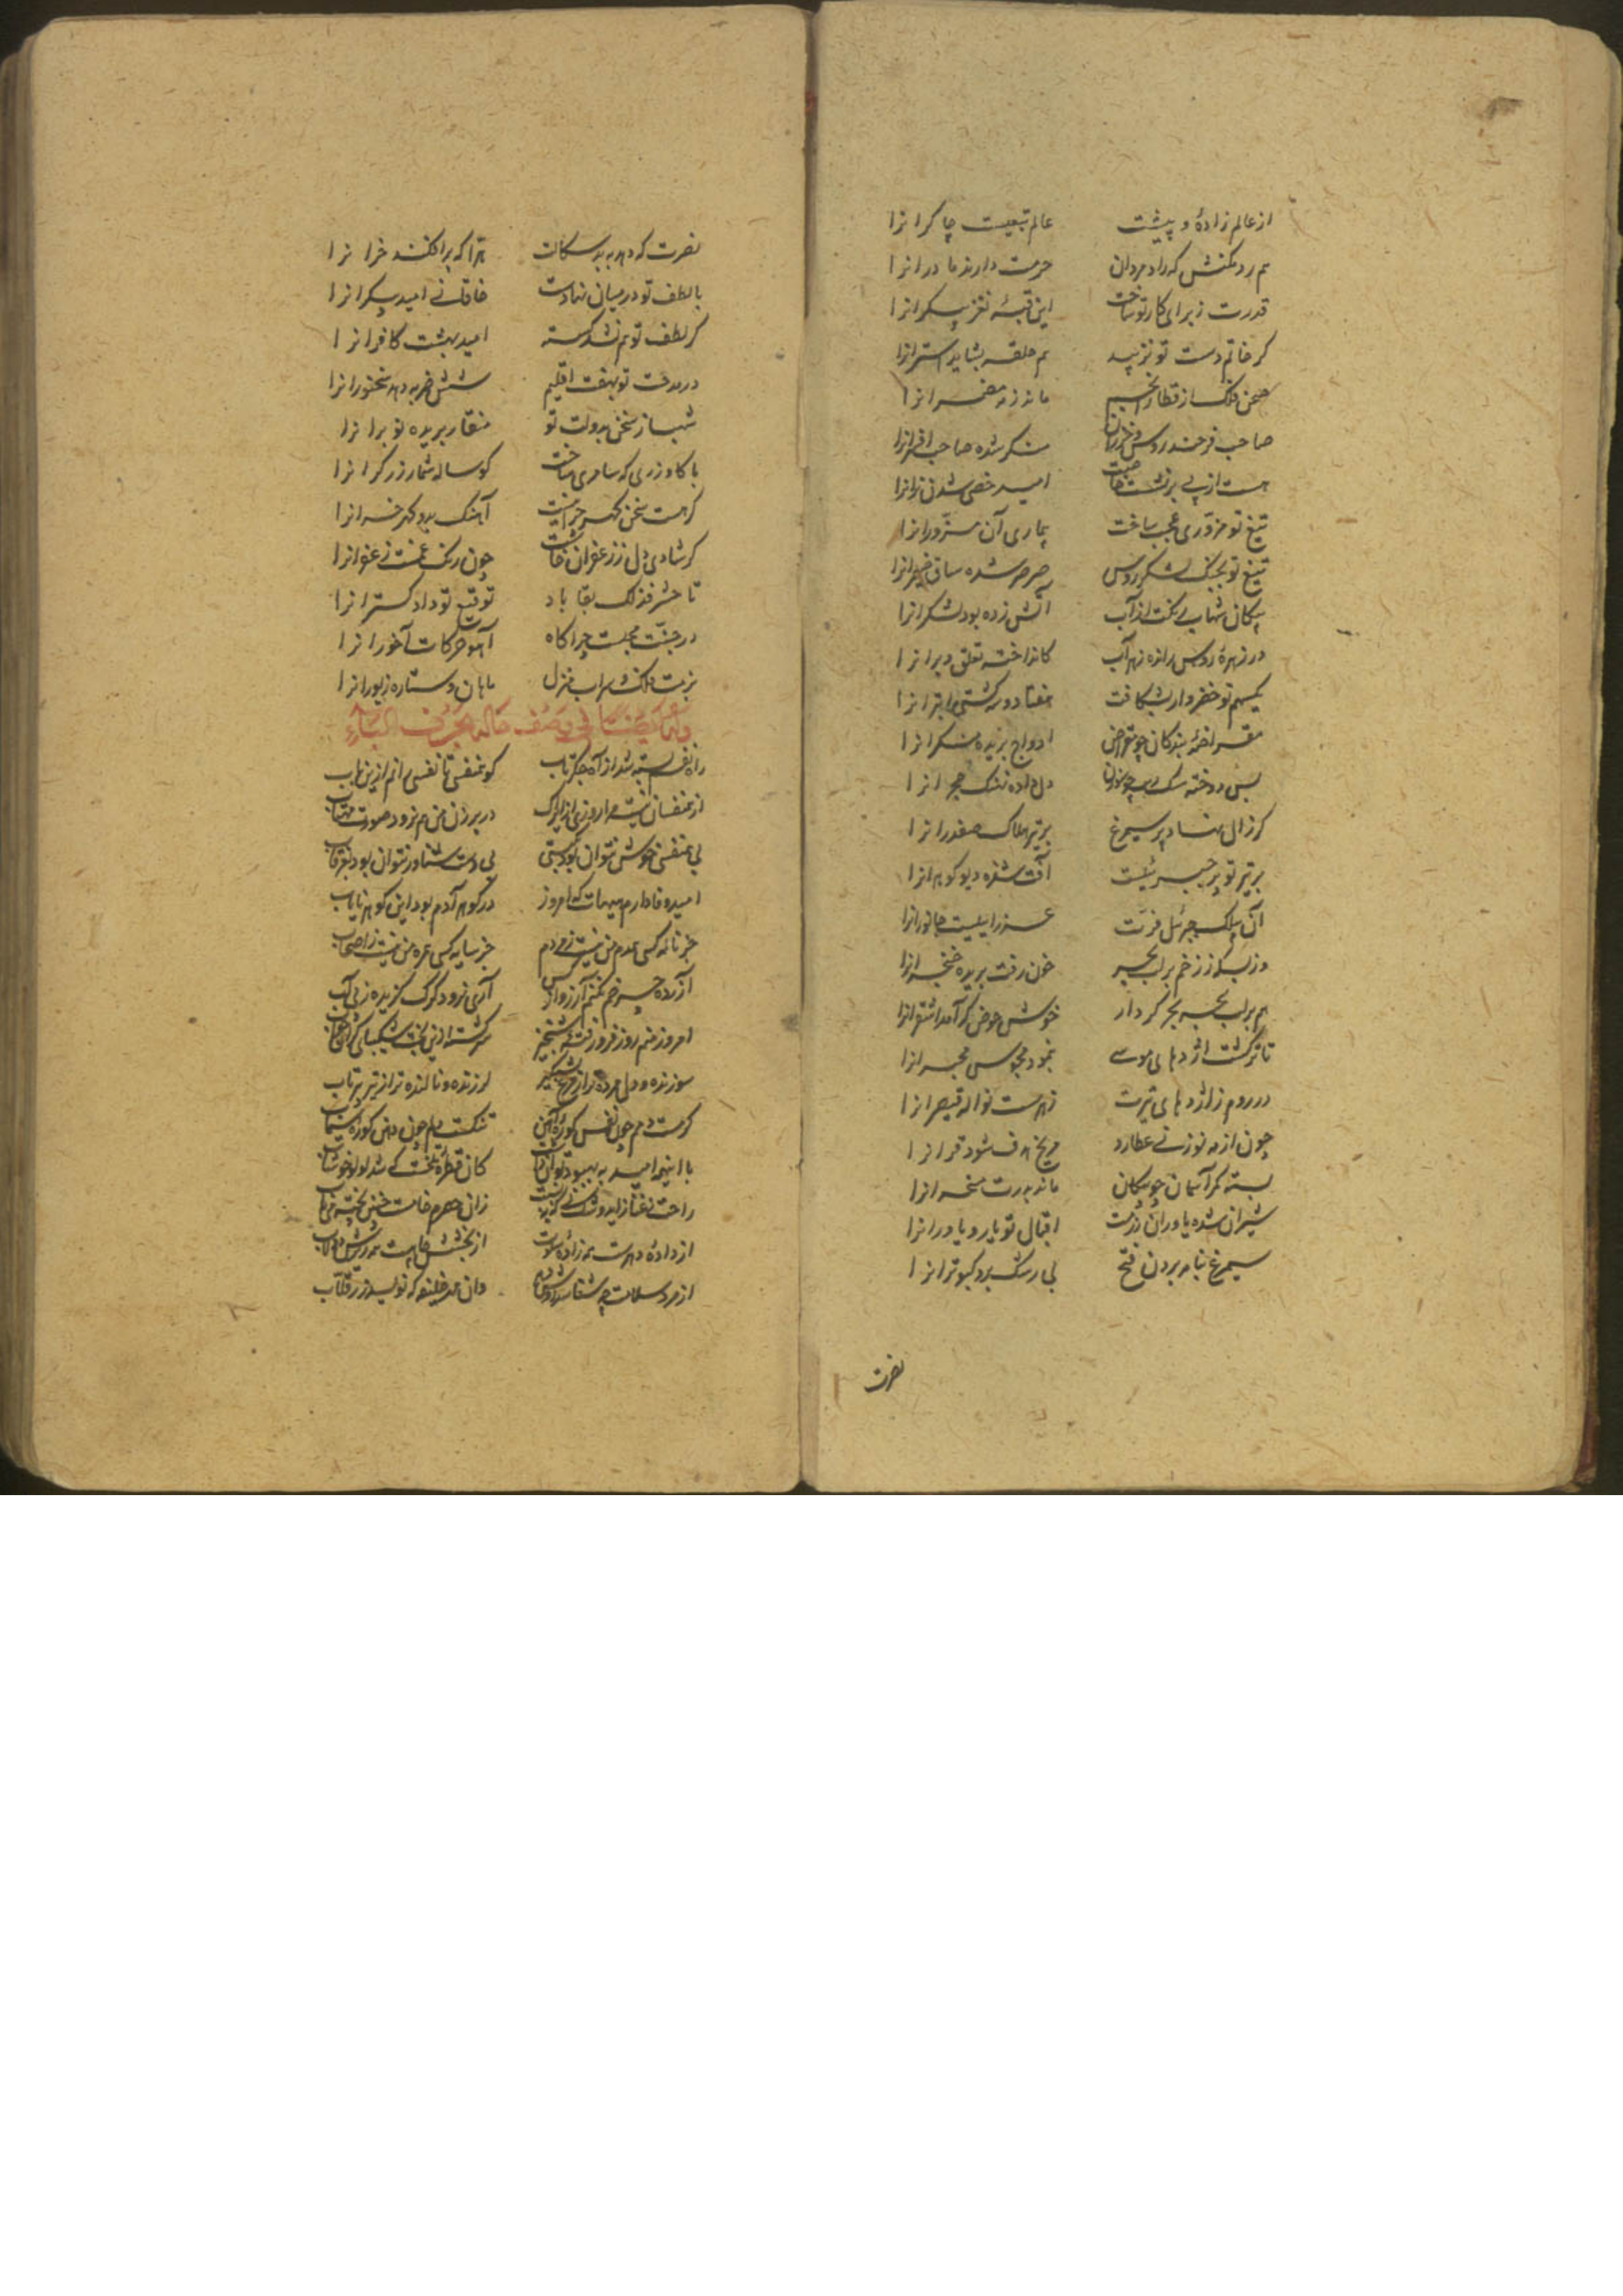 از عالم زادهٔ و پیشت عالم تبعیست چاکرانرا
هم رد مکنش که راد مردان حرمت دارند مادرانرا
قدرت ز برای کار تو ساخت این قبهٔ نغز بیکرانرا
کر خاتم دست تو نزیبد هم حلقه بشاید استرانرا
صحن فلک از قطار انجم ماند زمه مضمرانرا
صاحب غرضند روس و خزران منکر شده صاحب افرانرا
هست از پی بر نشست خاصت امید خصی شدن نرانرا
تیغ تو مزوری عجب ساخت بیماری آن مزورانرا
تیغ تو بجنک لشکر روس صرصر شده ساق ضیمرانرا
پیکان شهاب رنکت از آب آتش زده بود لشکرانرا
در زهرهٔ روس رانده زهر آب کانداخته تغلق دبرانرا
یک سهم تو خضروار بشکافت هفتاد و سه کشتی ابترانرا
مقراضهٔ بندکان چو مقراض اوداج بریده منکرانرا
بس دوخته سک زن چو سوزن دل داده ننک خنجرانرا
کر زال نهاد پر سیمرغ بر تیر هلاک صفدرانرا
بر تیر تو پر جبرئیلست آفت شده دیو کوهرانرا
آن بیلک جبرئیل فرت عزرائیلیست جانورانرا
وز بس که ز زخم بر لب بحر خون رفت بریده حنجرانرا
هم بر لب بحر بحر کردار خوش حوض کر آمد اشقرانرا
تا نرکشت اژدهای موسی ننمود مجوس مخبرانرا
در روم ز اژدهای تیرت زهرست نواله قیصرانرا
چون از مه نو زنی عطارد مریخ هدف شود قرانرا
بسته کمر آسمان چو پیکان ماند بدرت مسخرانرا
شیران شده یاوران رزمت اقبال تو یار و یاورانرا
سیمرغ بنامه بردن فتح بی رشک برد کبوترانرا
نصرت
نصرت که دهد به بدسکالت هرا که برافکند خرانرا
با لطف تو در میان نهادست خاقانی امید بیکرانرا
کز لطف تو هم نشد کسسته امید بهشت کافرانرا
در مدحت تو بهفت اقلیم شش ضربه دهد سخنورانرا
شهباز سخن بدولت تو منقار بریده نوبرانرا
با کاو زری که سامری ساخت کوساله شمار زرکرانرا
کر هست سخن کهر چرا نیست آهنک بدو کهر خرانرا
کر شادی دل ز زعفران خاست چون رنک غمست زعفرانرا
تا حشر فذلک بقا باد توقیع تو داد کسترانرا
در جنت مجلست چراکاه آهو حرکات آخورانرا
بزمت فلک و سرات منزل ماهان و ستاره زیورانرا
وله ایضا فی وصف حاله بحرف الباء
راه نفسم بسته شد از آه جکرتاب کو همنفسی تا نفسی رانم ازین باب
از همنفسان نیست مرا روزی ازیراک در روزن من هم نرود صورت مهتاب
بی همنفسی خوش نتوان بود بکیتی بی دست شناور نتوان بود بغرقاب
امید وفا دارم هیهات که امروز در کوهر آدم بود این کوهر نایاب
جز ناله کسی همدم من نیست ز مردم جز سایه کسی همره من نیست ز اصحاب
آزردهٔ چرخم نکنم آرزوی کس آری نرود کرک کزیده ز پی آب
امروز منم روز فرو رفته و شبخیز سرکشته ازین بخت سبکپای کرانخواب
سوزنده و دل مرده تر از شمع بشبکیر لرزنده و نالنده تر از تیر بپرتاب
کرمست دمم چون نفس کورهٔ آهن تنکست دلم چون دهن کوزهٔ سیماب
با اینهمه امید به بهبود توان داشت کان قطرهٔ تلخست که شد لؤلؤ خوشاب
از دادهٔ دهرست همه زادهٔ سلوت از بخشش چاهست همه ریزش دولاب